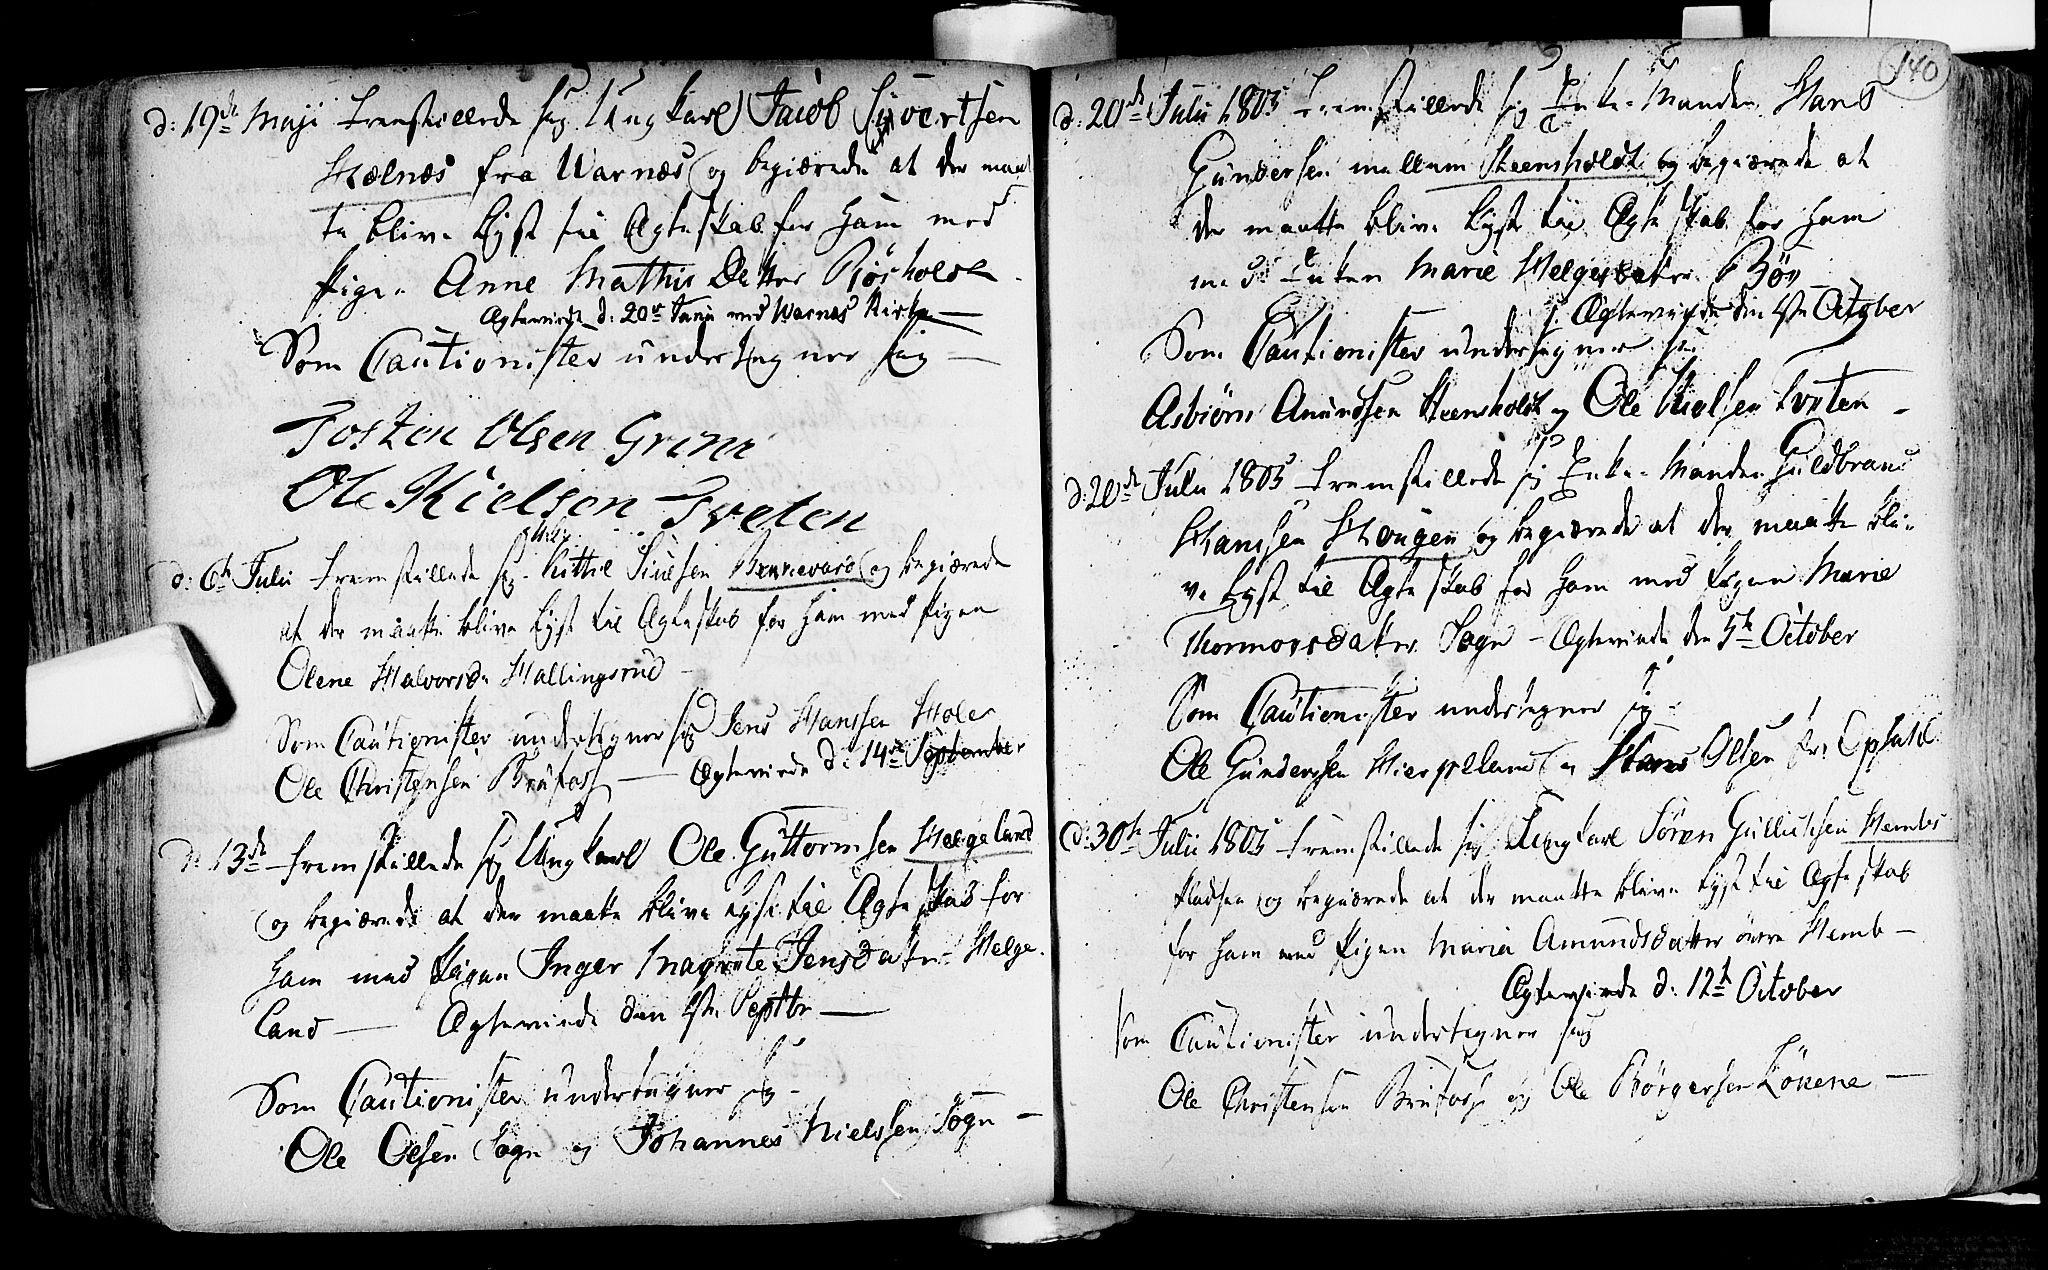 d: 19de Maji Fremstillede sig Ungkarl Jacob Sivertsen
Helnæs fra Warnæs og begiærede at der maat
te blive lyst til Ægteskab for ham med
Pigen Anne Mathis Datter Röshold
Ægteviede d: 20de Junii ved Warnæs Kirke
Som Cautionister undertegner sig
Tosten Olsen Grini
Ole Kielsen Tveten
d: 6te Julii Fremstillede sig Kittil Siulsen og begiærede
at der maatte blive lyst til Ægteskab for ham med Pigen
Olene Halvorsdr Hallingsrud
Som Cautionister undertegner sig Jens Hanssen Holer
Ole Christensen Brufoss Ægteviede d: 14de September
d: 13de fremstillede sig Ungkarl Ole Guttormsen Helgeland
og begiærede at der maatte blive lyst til Ægteskab for
ham med Pigen Inger Magrete Jensdatter Helge
land Ægteviede den Septbr
Som Cautionister undertegner sig
Ole Olsen Sogn og Johannes Nielssen Sogn
140
d: 20de Julii 1805 Fremstillede sig Enke-Manden Hans
Gundersen mellem Steensholdt og begiærede at
der maatte blive lyst til Ægteskab for ham
med Enken Marie Helgesdatter Böe
Ægteviede den October
Som Cautionister undertegner sig
Asbiörn Amundsen Steensholdt og Ole Kielsen Tveten
d: 20de Julii 1805 Fremstillede sig Enke-Manden Guldbrand
Hanssen Hougen og begiærede at der maatte bli-
ve lyst til Ægteskab for ham med Pigen Marie
Thormorsdatter Sogn Ægteviede den 5te October
Som Cautionister undertegner sig
Ole Gundersen Hierpeland og Hans Olsen Opsald
d: 30te Julii 1805 Fremstillede sig Ungkarl Sören Gullichsen Hembs
Pladsen og begiærede at der maatte blive lyst til Ægteskab
for ham med Pigen Maria Amundsdatter övre Hemb
Ægteviede d: 12te October
Som Cautionister undertegner sig
Ole Christensen Brufoss og Ole Börgersen Lökene